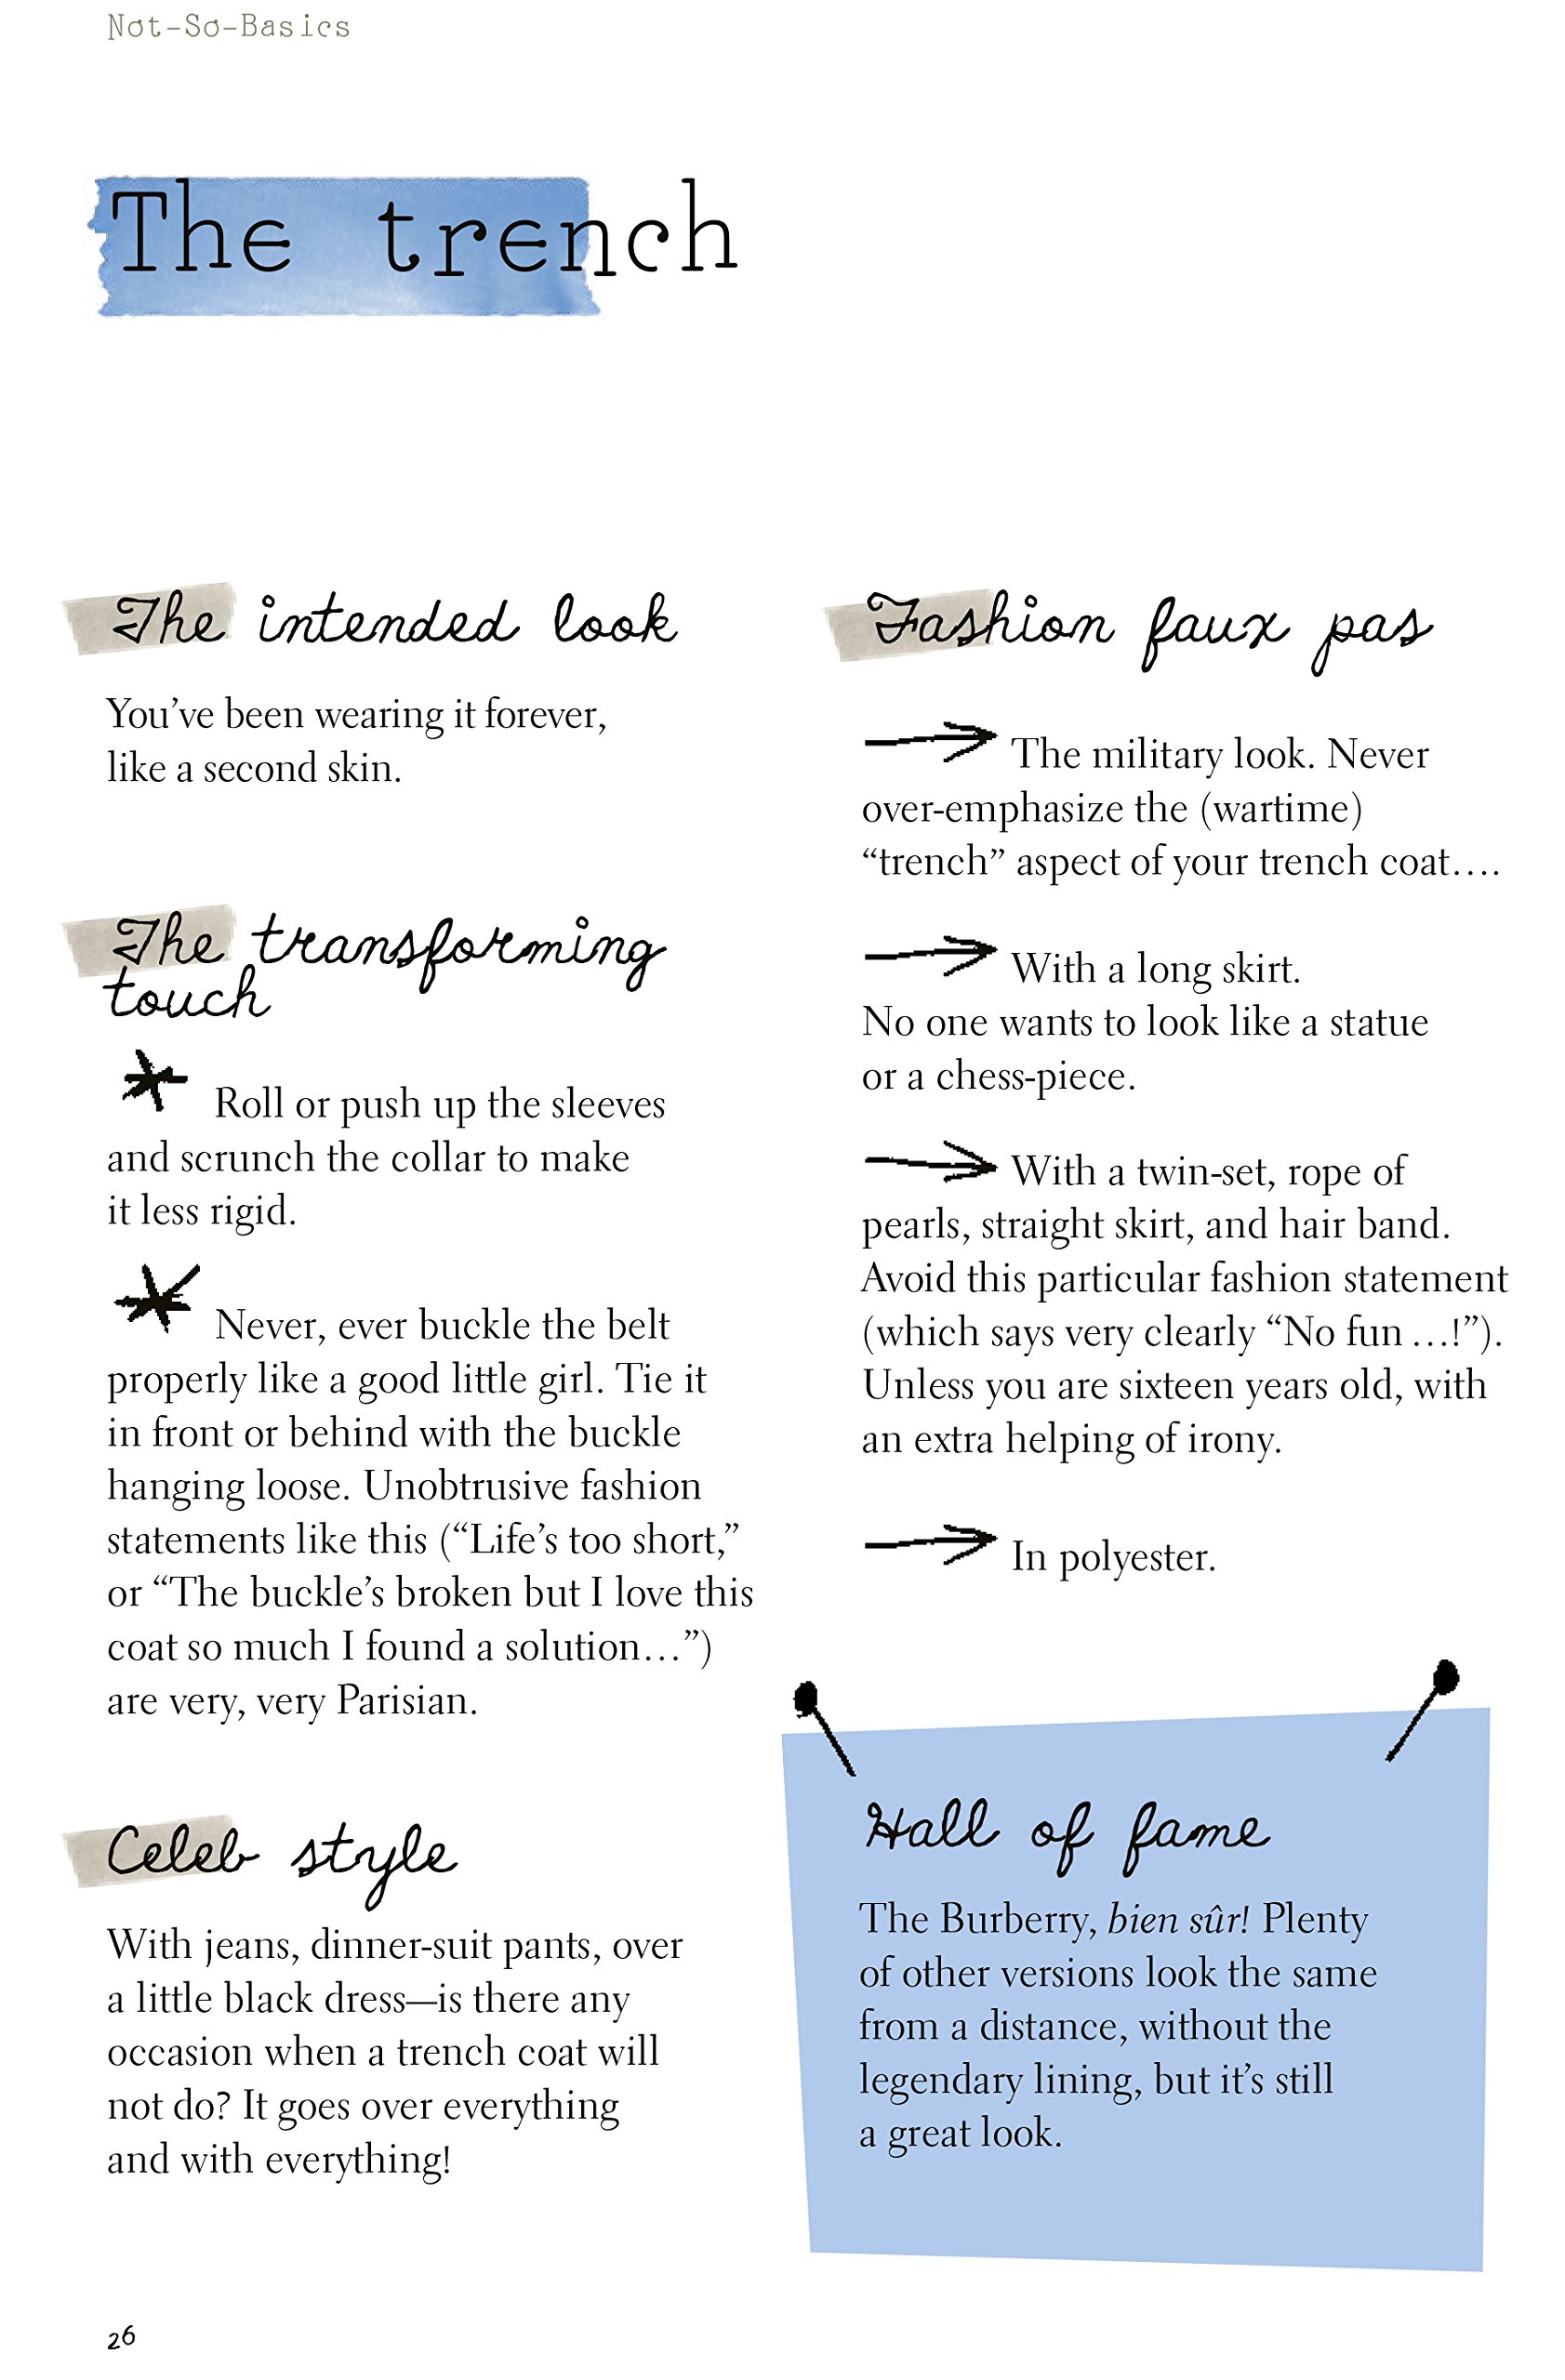 Not-So-Basics
The trench
The intended look
You’ve been wearing it forever,
like a second skin.
The transforming
touch
Roll or push up the sleeves
and scrunch the collar to make
it less rigid.
Never, ever buckle the belt
properly like a good little girl. Tie it
in front or behind with the buckle
hanging loose. Unobtrusive fashion
statements like this (“Life’s too short,”
or “The buckle’s broken but I love this
coat so much I found a solution…”)
are very, very Parisian.
Celeb style
With jeans, dinner-suit pants, over
a little black dress—is there any
occasion when a trench coat will
not do? It goes over everything
and with everything!
Fashion faux pas
The military look. Never
over-emphasize the (wartime)
“trench” aspect of your trench coat….
With a long skirt.
No one wants to look like a statue
or a chess-piece.
With a twin-set, rope of
pearls, straight skirt, and hair band.
Avoid this particular fashion statement
(which says very clearly “No fun …!”).
Unless you are sixteen years old, with
an extra helping of irony.
In polyester.
Hall of fame
The Burberry, bien sûr! Plenty
of other versions look the same
from a distance, without the
legendary lining, but it’s still
a great look.
26